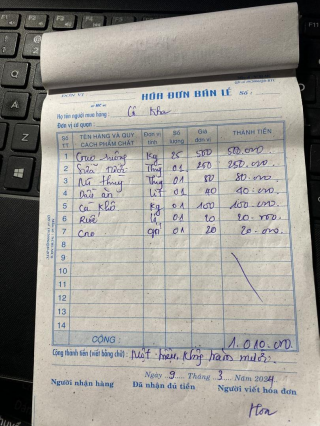 HÓA ĐƠN BÁN LẺ Số:
Họ tên người mua hàng: Cô
Đơn vị cơ quan:
Số TT TÊN HÀNG VÀ QUY CÁCH PHẨM CHẤT Đơn vị tính Số lượng Giá đơn vị THÀNH TIỀN
1 Kg 25 500 500.000
2 Sữa tươi Thùg 01 250 250.000
3 Mì thùg Thùg 01 80 80.000
4 Dầu ăn Lít 01 40 40.000
5 Cá khô Kg 01 100 100.000
6 01 20 20.000
7 01 20 20.000
8
9
10
11
12
13
14
CỘNG: 1.010.000
Cộng thành tiền (viết bằng chữ): Một triệu, không trăm mười
Ngày 9 Tháng 3 Năm 2024
Người nhận hàng Đã nhận đủ tiền Người viết hóa đơn
Hoa